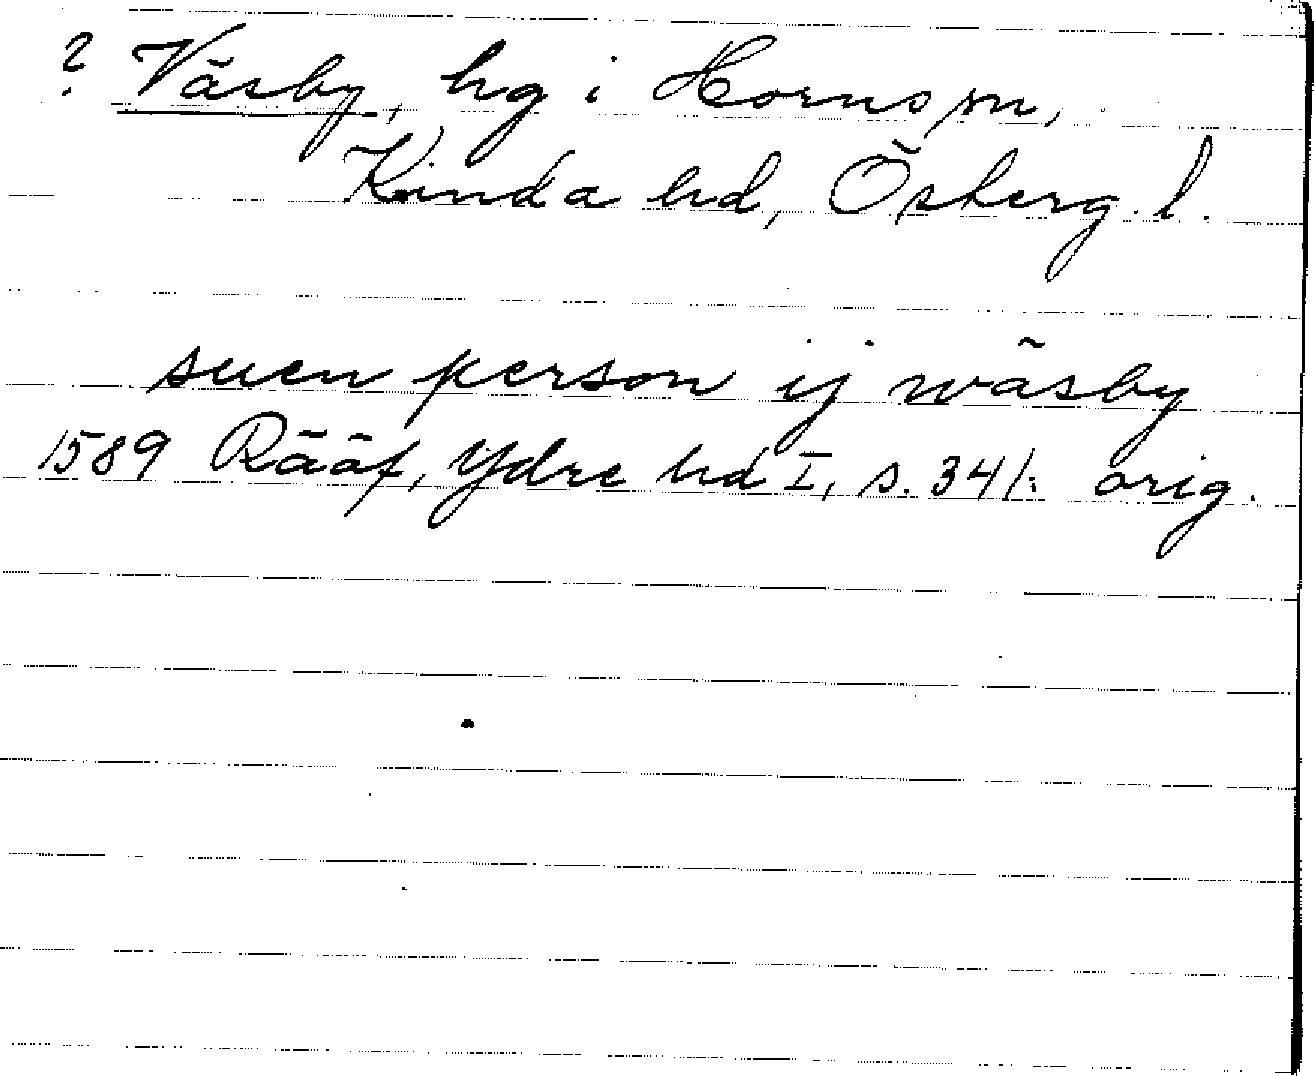 ? Väsby, hg i Horns sn,
Kinda hd, Österg. l.
suen person ij wäsby
1589 Rääf, Ydre hd I, s. 341: orig.